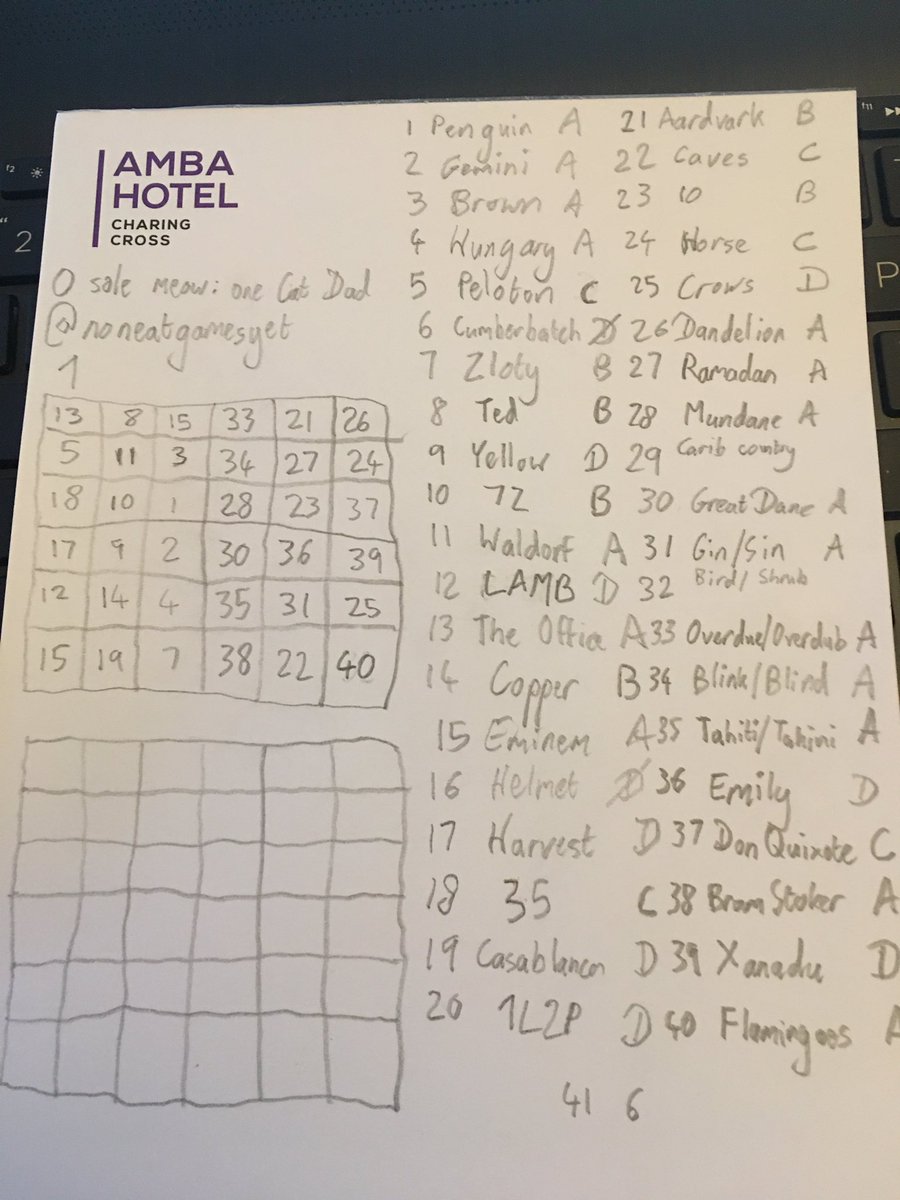 AMBA
HOTEL
CHARING
CROSS
0 sale meow: one Cat Dad
@noneatgamesyet
1
13 8 15 33 21 26
5 11 3 34 27 24
18 10 1 28 23 37
17 9 2 30 36 39
12 14 4 35 31 25
15 19 7 38 22 40
1 Penguin A
2 Gemini A
3 Brown A
4 Hungary A
5 Peloton C
6 Cumberbatch D
7 Zloty B
8 Ted B
9 Yellow D
10 72 B
11 Waldorf A
12 LAMB D
13 The Office A
14 Copper B
15 Eminem A
16 Helmet D
17 Harvest D
18 35 C
19 Casablanca D
20 1L2P D
21 Aardvark B
22 Caves C
23 10 B
24 Horse C
25 Crows D
26 Dandelion A
27 Ramadan A
28 Mundane A
29 Carib country
30 Great Dane A
31 Gin/Sin A
32 Bird/Shrub
33 Overdue/Overdub A
34 Blink/Blind A
35 Tahiti/Tahini A
36 Emily D
37 Don Quixote C
38 Bram Stoker A
39 Xanadu D
40 Flamingoes A
41 6